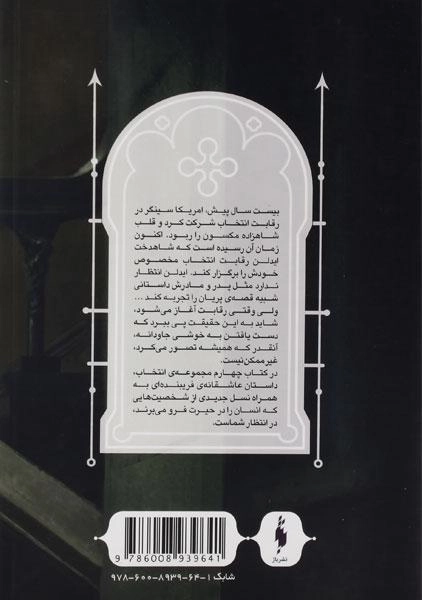 بیست سال پیش، امریکا سینگر در
رقابت انتخاب شرکت کرد و قلب
شاهزاده مکسون را ربود. اکنون
زمان آن رسیده است که شاهدخت
ایدلن رقابت انتخاب مخصوص
خودش را برگزار کند. ایدلن انتظار
ندارد مثل پدر و مادرش داستانی
شبیه قصه‌ی پریان را تجربه کند ...
ولی وقتی رقابت آغاز می‌شود،
شاید به این حقیقت پی ببرد که
دست یافتن به خوشی جاودانه،
آنقدر که همیشه تصور می‌کرد،
غیرممکن نیست.
در کتاب چهارم مجموعه‌ی انتخاب،
داستان عاشقانه‌ی فریبنده‌ای به
همراه نسل جدیدی از شخصیت‌هایی
که انسان را در حیرت فرو می‌برند،
در انتظار شماست.
نشر باژ
9 786008 939641
شابک ۱-۶۴-۸۹۳۹-۶۰۰-۹۷۸